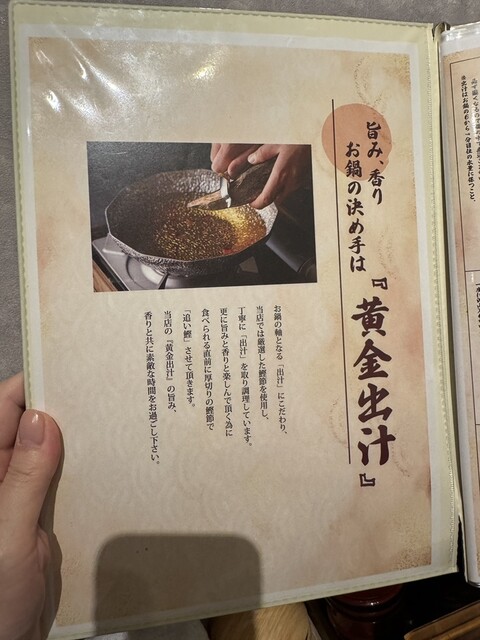 旨み、香り
お鍋の決め手は
『黄金出汁』
お鍋の軸となる「出汁」にこだわり、
当店では厳選した鰹節を使用し、
丁寧に「出汁」を取り調理しています。
更に旨みと香りと楽しんで頂く為に
食べられる直前に厚切りの鰹節で
「追い鰹」させて頂きます。
当店の『黄金出汁』の旨み、
香りと共に素敵な時間をお過ごし下さい。